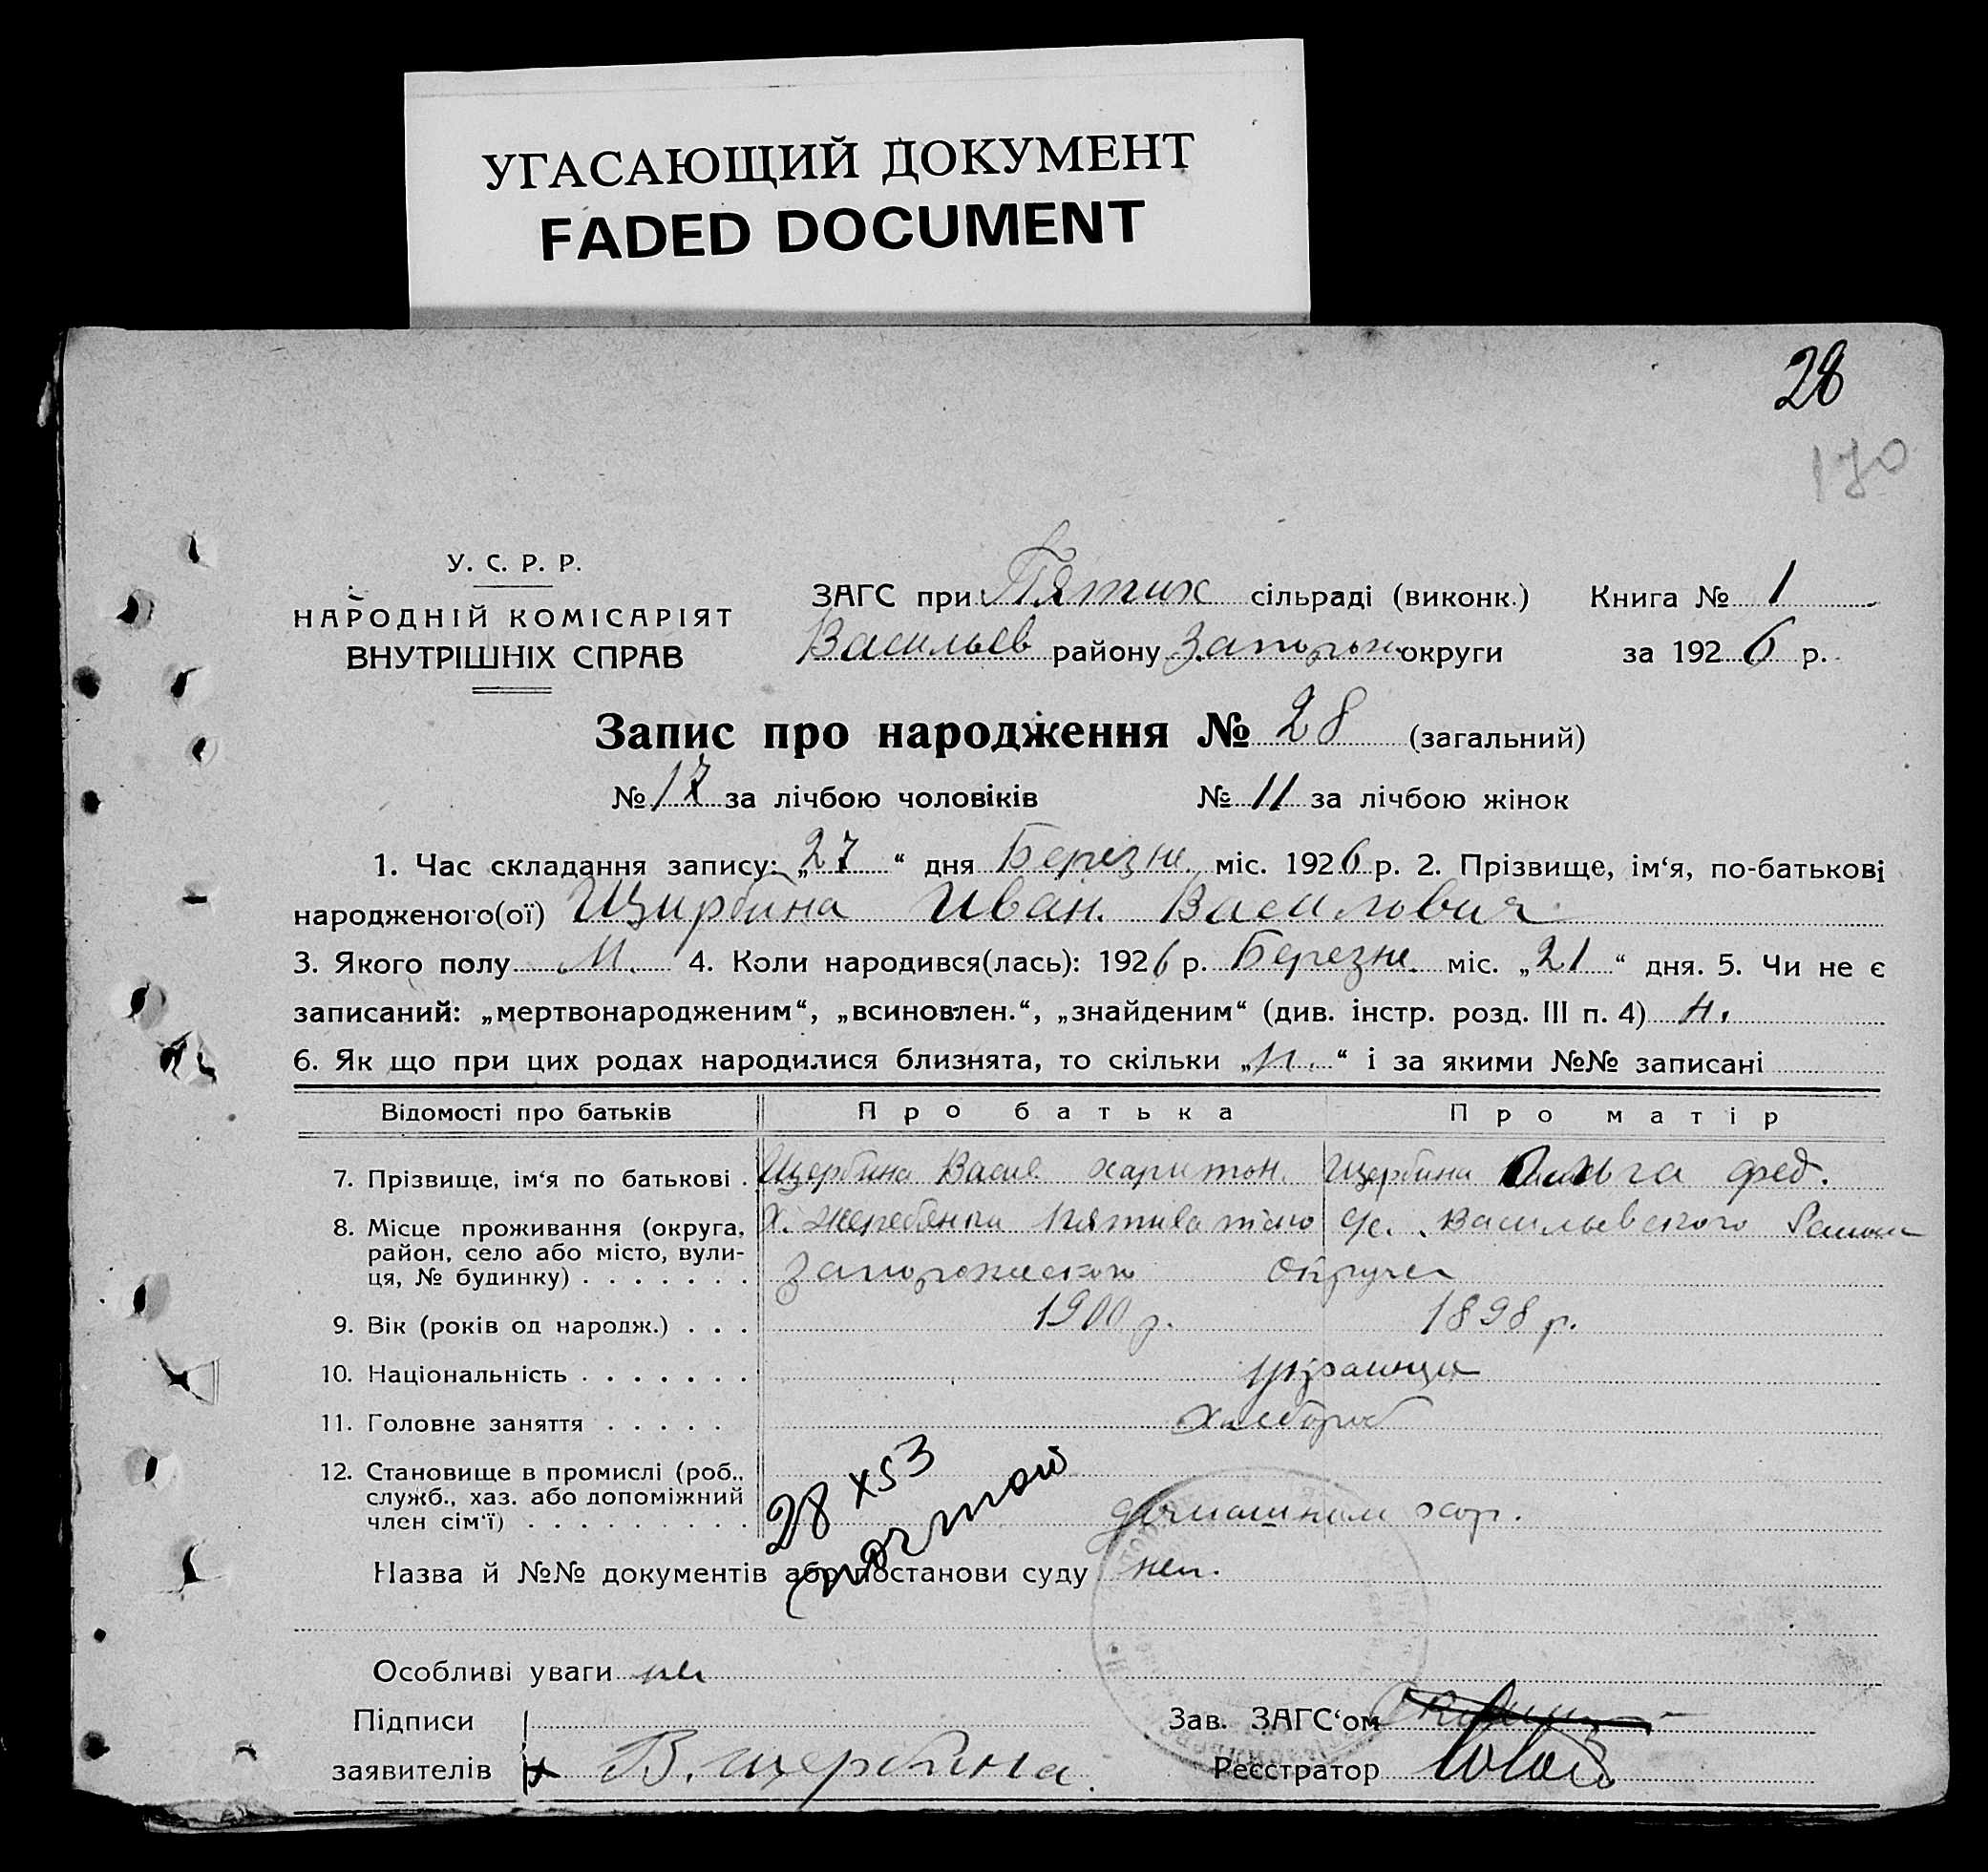 УГАСАЮЩИЙ ДОКУМЕНТ
FADED DOCUMENT
28
170
У. С. Р. Р.
НАРОДНІЙ КОМІСАРІЯТ
ВНУТРІШНІХ СПРАВ
ЗАГС при Пятих сільраді (виконк.) Книга № 1
Васильев району Запорож. округи за 1926 р.
Запис про народження № 28 (загальний)
№ 17 за лічбою чоловіків № 11 за лічбою жінок
1. Час складання запису: „27“ дня Березне міс. 1926 р. 2. Прізвище, ім‘я, по-батькові
народженого(ої) Щирбина Иван. Василовия
3. Якого полу М. 4. Коли народився(лась): 1926 р. Березне. міс. „21“ дня. 5. Чи не є
записаний: „мертвонародженим“, „всиновлен.“, „знайденим“ (див. інстр. розд. III п. 4) н.
6. Як що при цих родах народилися близнята, то скільки „н.“ і за якими №№ записані
Відомості про батьків Про батька Про матір
7. Прізвище, ім‘я по батькові . Щербина Васил харитон. Щербина Ольга фед.
8. Місце проживання (округа, х. с/с. Васильевского
район, село або місто, вули-
ця, № будинку) . . . . . . . Запорожского Округа
9. Вік (років од народж.) . . . 1900 р. 1898 р.
10. Національність . . . . . . . украинцы
11. Головне заняття . . . . . хлебороб
12. Становище в промислі (роб.,
служб., хаз. або допоміжний
член сім‘ї) . . . . . . . . . домашнем хор.
28 X 53
Назва й №№ документів або постанови суду нем.
Особливі уваги не
Підписи
заявителів В. щербина.
Зав. ЗАГС‘ом
Реєстратор